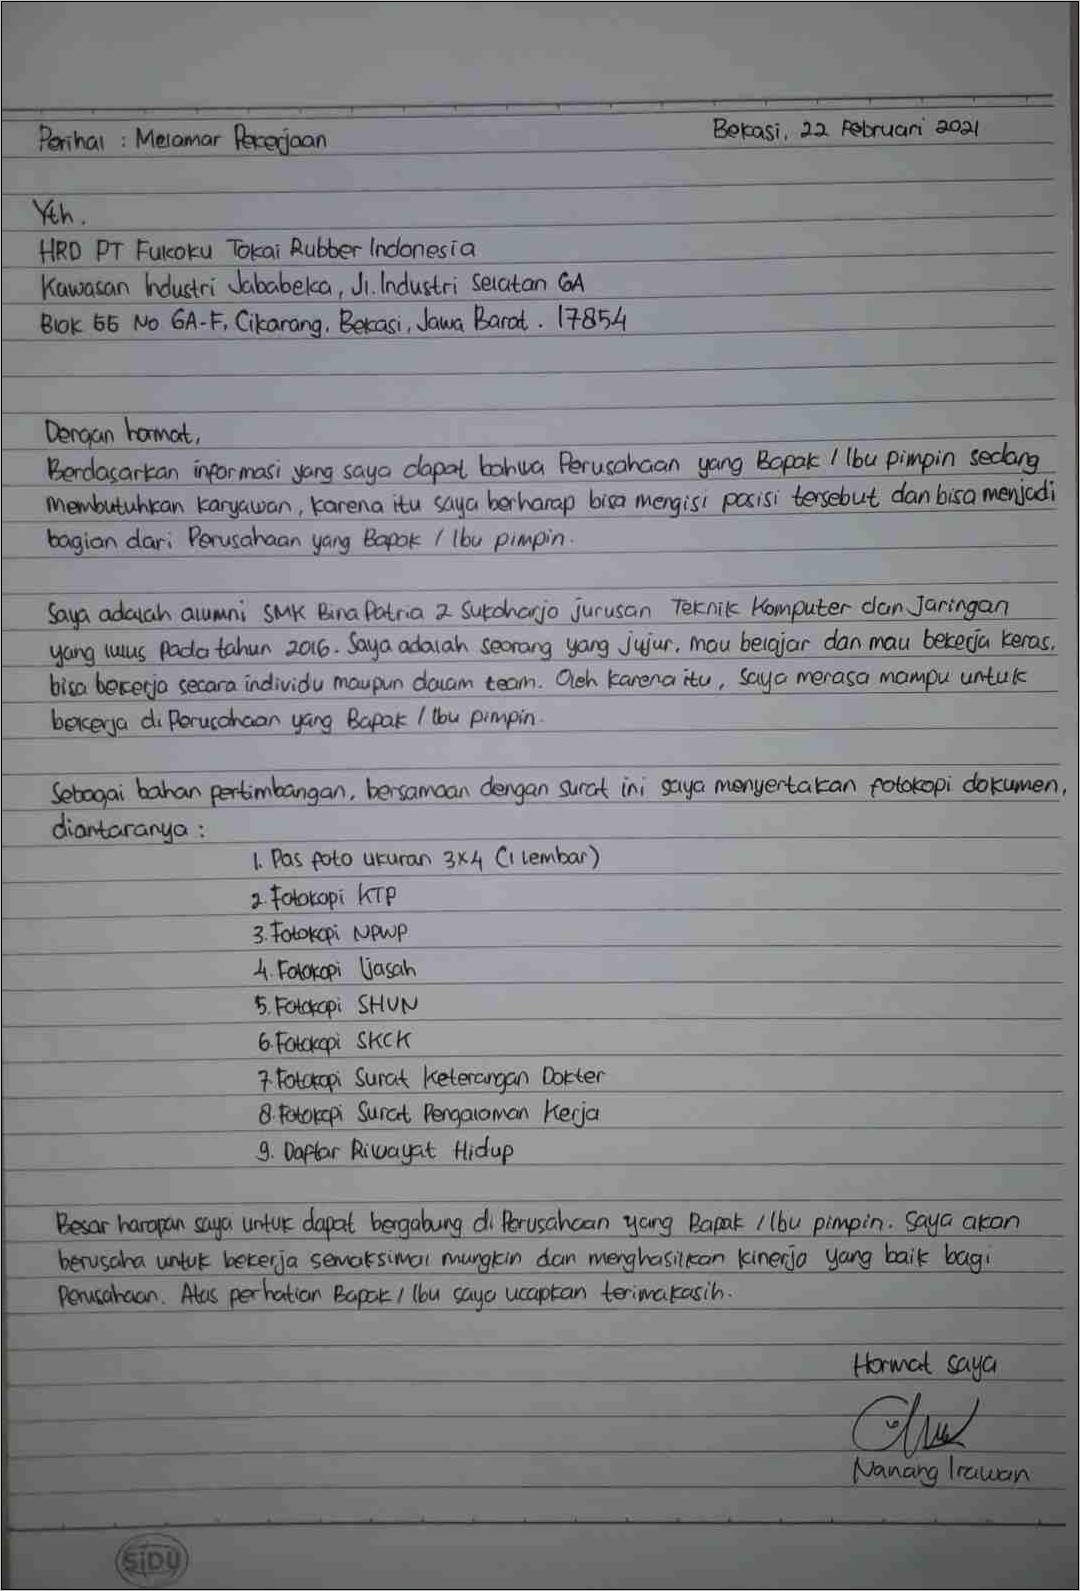 Perihal : Melamar Pekerjaan
Bekasi, 22 Februari 2021
Yth.
HRD PT Fukoku Tokai Rubber Indonesia
Kawasan Industri Jababeka, Jl. Industri Selatan 6A
Blok GG No 6A-F, Cikarang, Bekasi, Jawa Barat. 17854
Dengan hormat,
Berdasarkan informasi yang saya dapat bahwa Perusahaan yang Bapak / Ibu pimpin sedang
membutuhkan karyawan, karena itu saya berharap bisa mengisi posisi tersebut dan bisa menjadi
bagian dari Perusahaan yang Bapak / Ibu pimpin.
Saya adalah alumni SMK Bina Patria 2 Sukoharjo jurusan Teknik Komputer dan Jaringan
yang lulus pada tahun 2016. Saya adalah seorang yang jujur, mau belajar dan mau bekerja keras,
bisa bekerja secara individu maupun dalam team. Oleh karena itu, saya merasa mampu untuk
bekerja di Perusahaan yang Bapak / Ibu pimpin.
Sebagai bahan pertimbangan, bersamaan dengan surat ini saya menyertakan fotokopi dokumen,
diantaranya :
1. Pas foto ukuran 3x4 (1 lembar)
2. Fotokopi KTP
3. Fotokopi NPWP
4. Fotokopi Ijasah
5. Fotokopi SHUN
6. Fotokopi SKCK
7. Fotokopi Surat Keterangan Dokter
8. Fotokopi Surat Pengalaman Kerja
9. Daftar Riwayat Hidup
Besar harapan saya untuk dapat bergabung di Perusahaan yang Bapak / Ibu pimpin. Saya akan
berusaha untuk bekerja semaksimal mungkin dan menghasilkan kinerja yang baik bagi
Perusahaan. Atas perhatian Bapak / Ibu saya ucapkan terimakasih.
Hormat saya
Nanang Irawan
SiDU